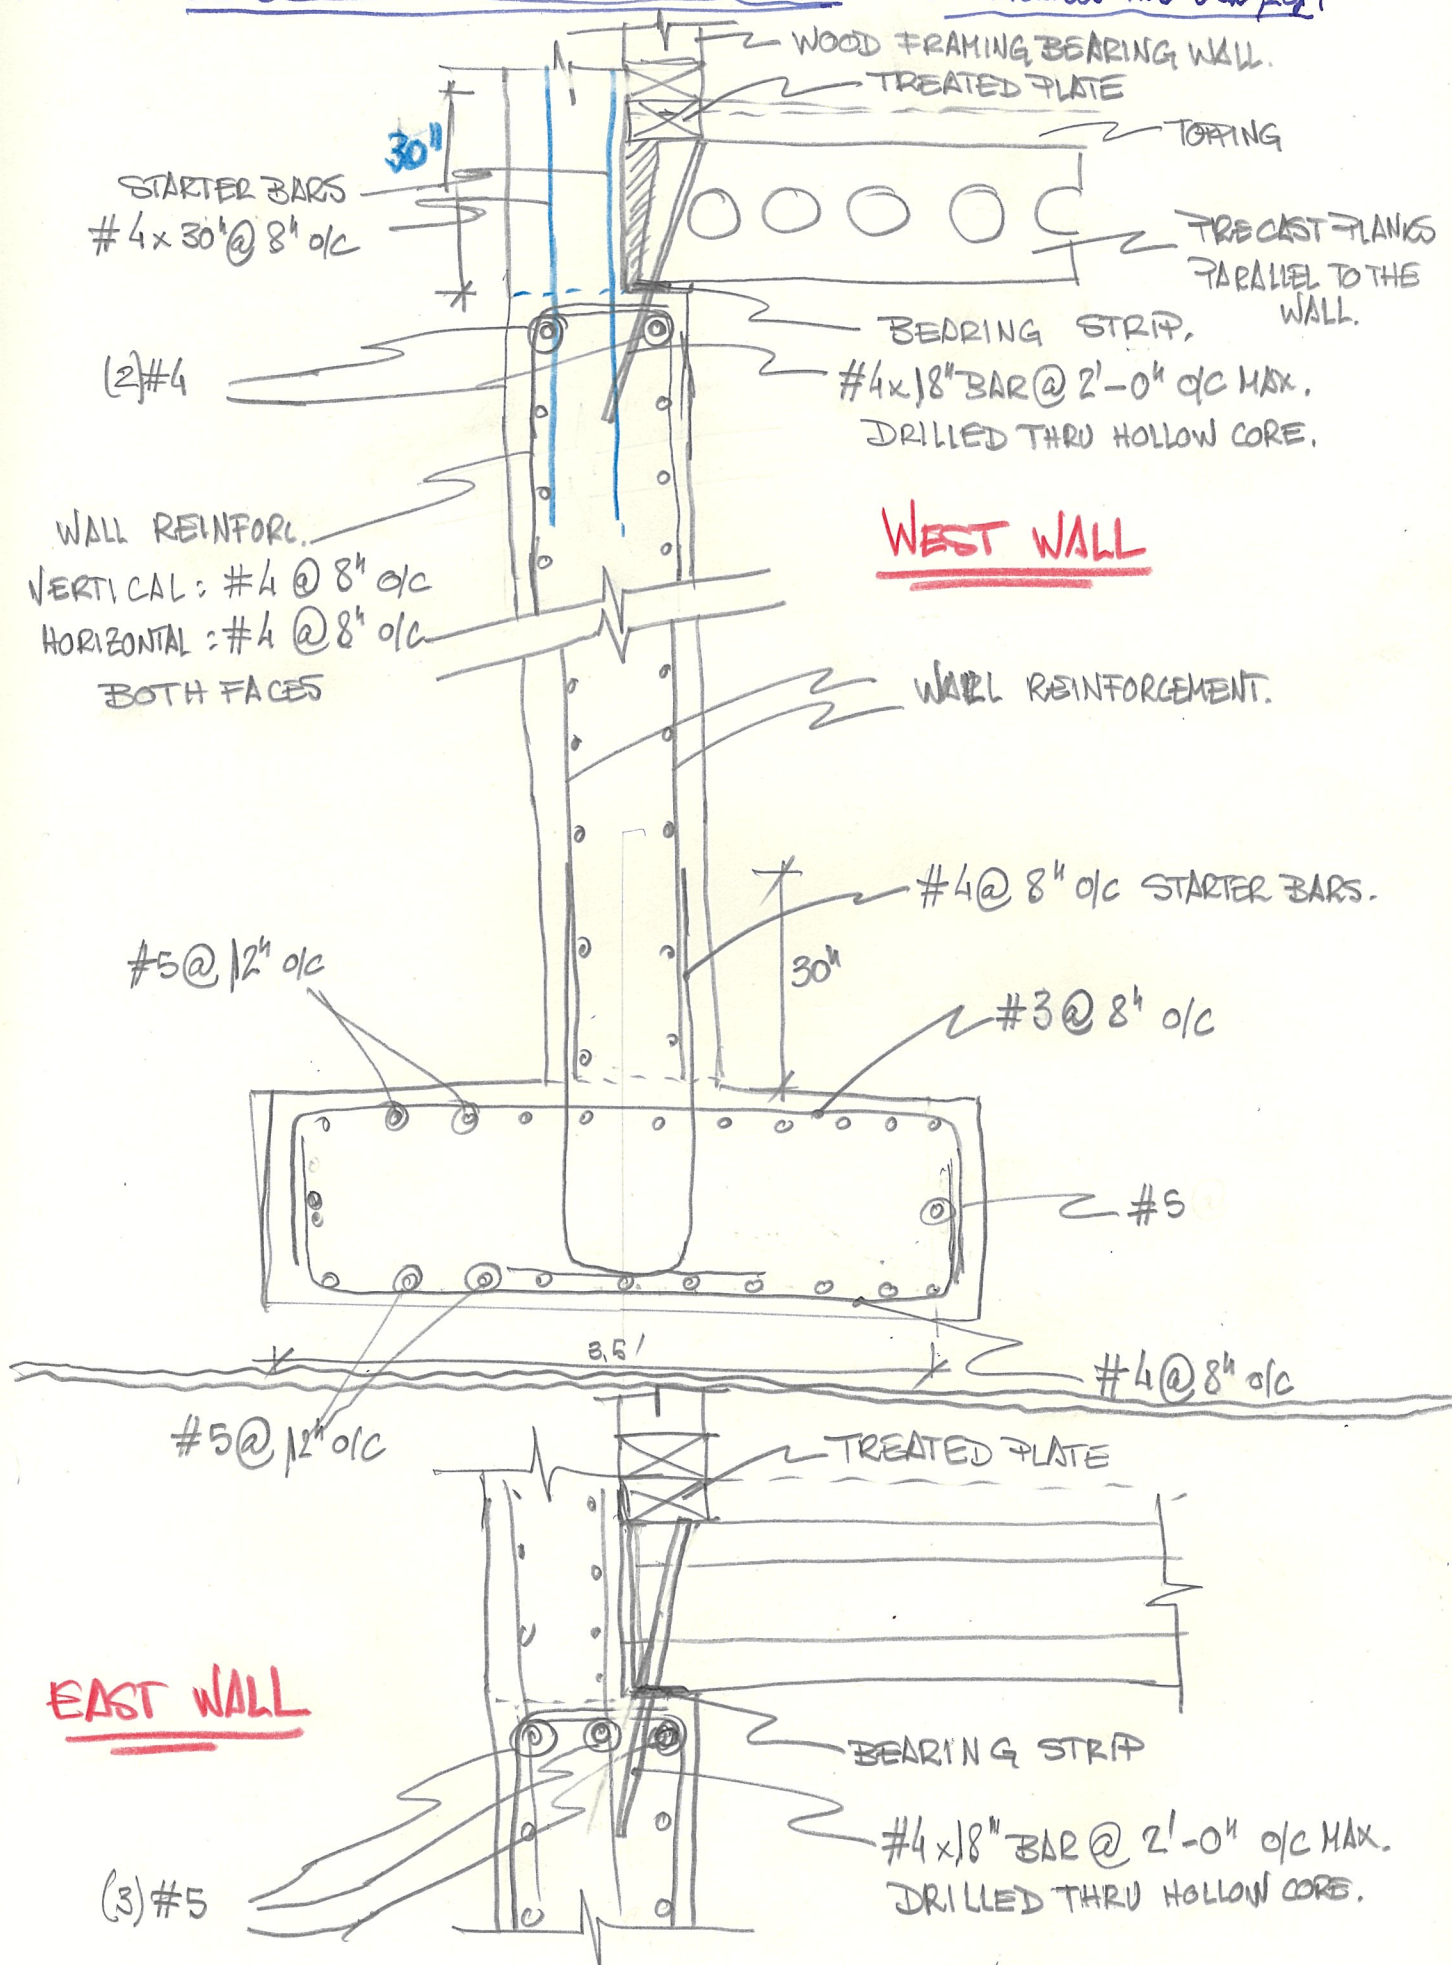 WOOD FRAMING BEARING WALL.
TREATED PLATE
TOPPING
30"
STARTER BARS
#4x30"@8" o/c
PRECAST PLANKS
PARALLEL TO THE
WALL.
BEARING STRIP.
(2)#4
#4x18" BAR @ 2'-0" o/c MAX.
DRILLED THRU HOLLOW CORE.
WEST WALL
WALL REINFORC.
VERTICAL: #4 @ 8" o/c
HORIZONTAL: #4 @ 8" o/c
BOTH FACES
WALL REINFORCEMENT.
#4@ 8" o/c STARTER BARS.
#5@12" o/c
30"
#3@8" o/c
#5
3,5'
#4@8" o/c
#5@12" o/c
TREATED PLATE
EAST WALL
BEARING STRIP
#4x18" BAR @ 2'-0" o/c MAX.
DRILLED THRU HOLLOW CORE.
(3)#5